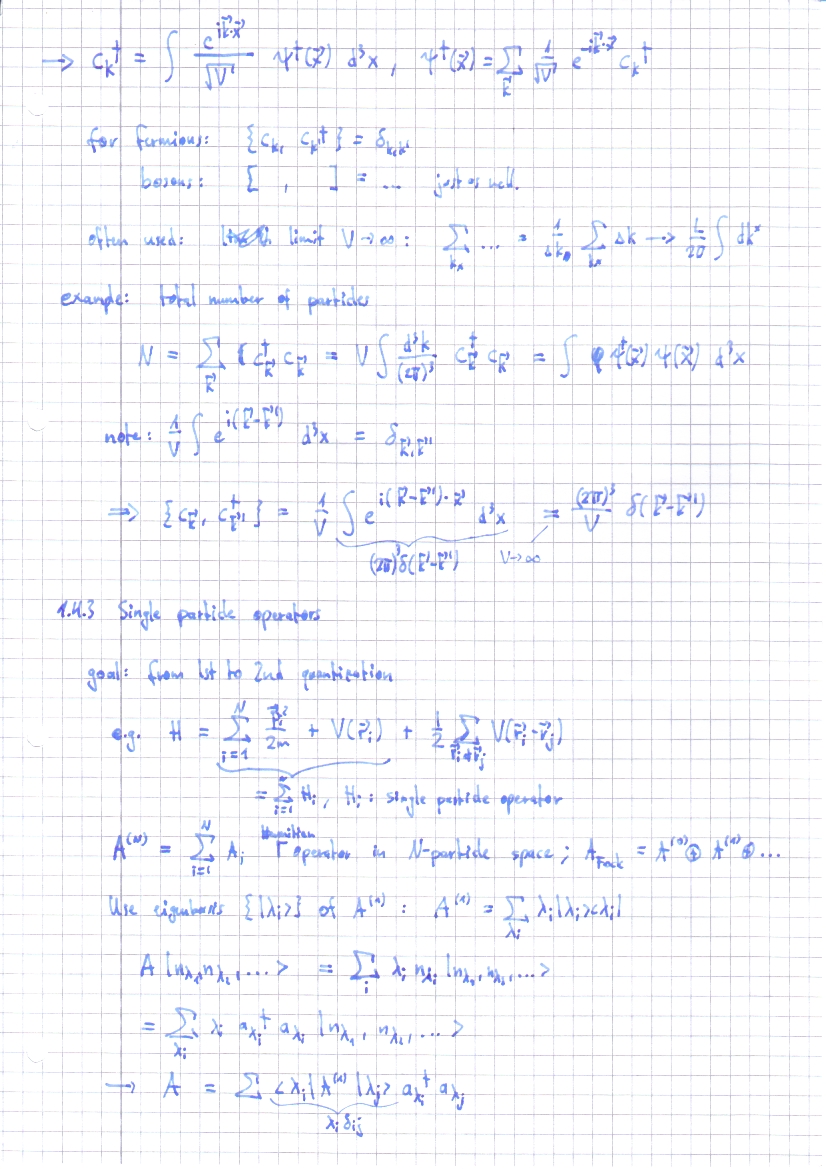 → c_k† = ∫ e^{i\vec{k}·\vec{x}}/√V ψ†(\vec{x}) d³x , ψ†(\vec{x}) = Σ_{\vec{k}} 1/√V e^{-i\vec{k}·\vec{x}} c_k†
for fermions: {c_k, c_{k'}†} = δ_{k,k'}
bosons: [ , ] = ... just as well.
often used: limit V→∞: Σ_{k_x} ... = 1/Δk_x Σ_{k_x} Δk → L/2π ∫ dk^x
example: total number of particles
N = Σ_{\vec{k}} c†_{\vec{k}} c_{\vec{k}} = V ∫ d³k/(2π)³ c†_{\vec{k}} c_{\vec{k}} = ∫ ψ†(\vec{x}) ψ(\vec{x}) d³x
note: 1/V ∫ e^{i(\vec{k}-\vec{k}')} d³x = δ_{\vec{k},\vec{k}'}
⇒ {c_{\vec{k}}, c†_{\vec{k}'}} = 1/V ∫ e^{i(\vec{k}-\vec{k}')·\vec{x}} d³x = (2π)³/V δ(\vec{k}-\vec{k}')
(2π)³δ(\vec{k}-\vec{k}') V→∞
1.4.3 Single particle operators
goal: from 1st to 2nd quantization
e.g. H = Σ_{i=1}^{N} \vec{p}_i²/2m + V(\vec{r}_i) + 1/2 Σ_{\vec{r}_i≠\vec{r}_j} V(\vec{r}_i-\vec{r}_j)
= Σ_{i=1} H_i , H_i : single particle operator
Hermitian
A^{(N)} = Σ_{i=1}^{N} A_i operator in N-particle space; A_{Fock} = A^{(0)} ⊕ A^{(1)} ⊕ ...
Use eigenbasis {|λ_i>} of A^{(1)} : A^{(1)} = Σ_{λ_i} λ_i|λ_i><λ_i|
A |n_{λ_1}, n_{λ_2}, ...> = Σ_i λ_i n_{λ_i} |n_{λ_1}, n_{λ_2}, ...>
= Σ_{λ_i} λ_i a_{λ_i}† a_{λ_i} |n_{λ_1}, n_{λ_2}, ...>
→ A = Σ <λ_i|A^{(1)}|λ_j> a_{λ_i}† a_{λ_j}
λ_i δ_{ij}